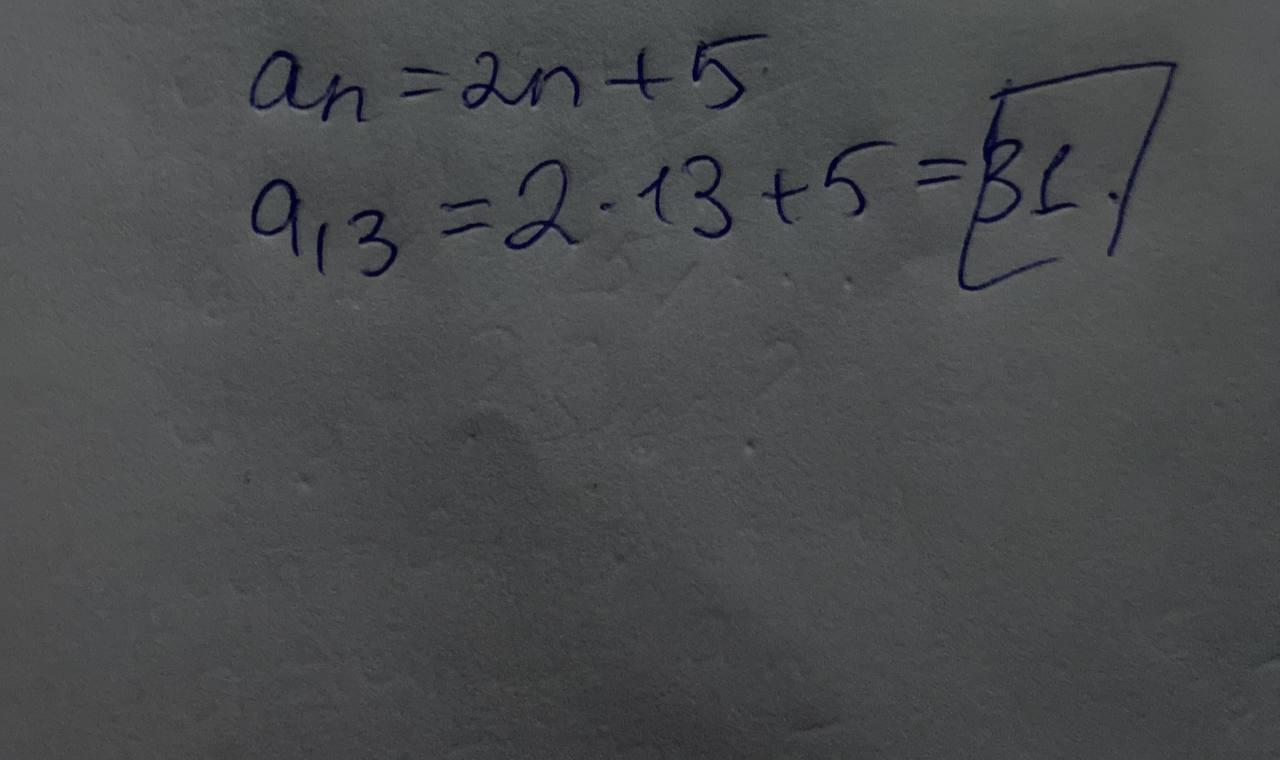 aₙ = 2n + 5
a₁₃ = 2 · 13 + 5 = 31.